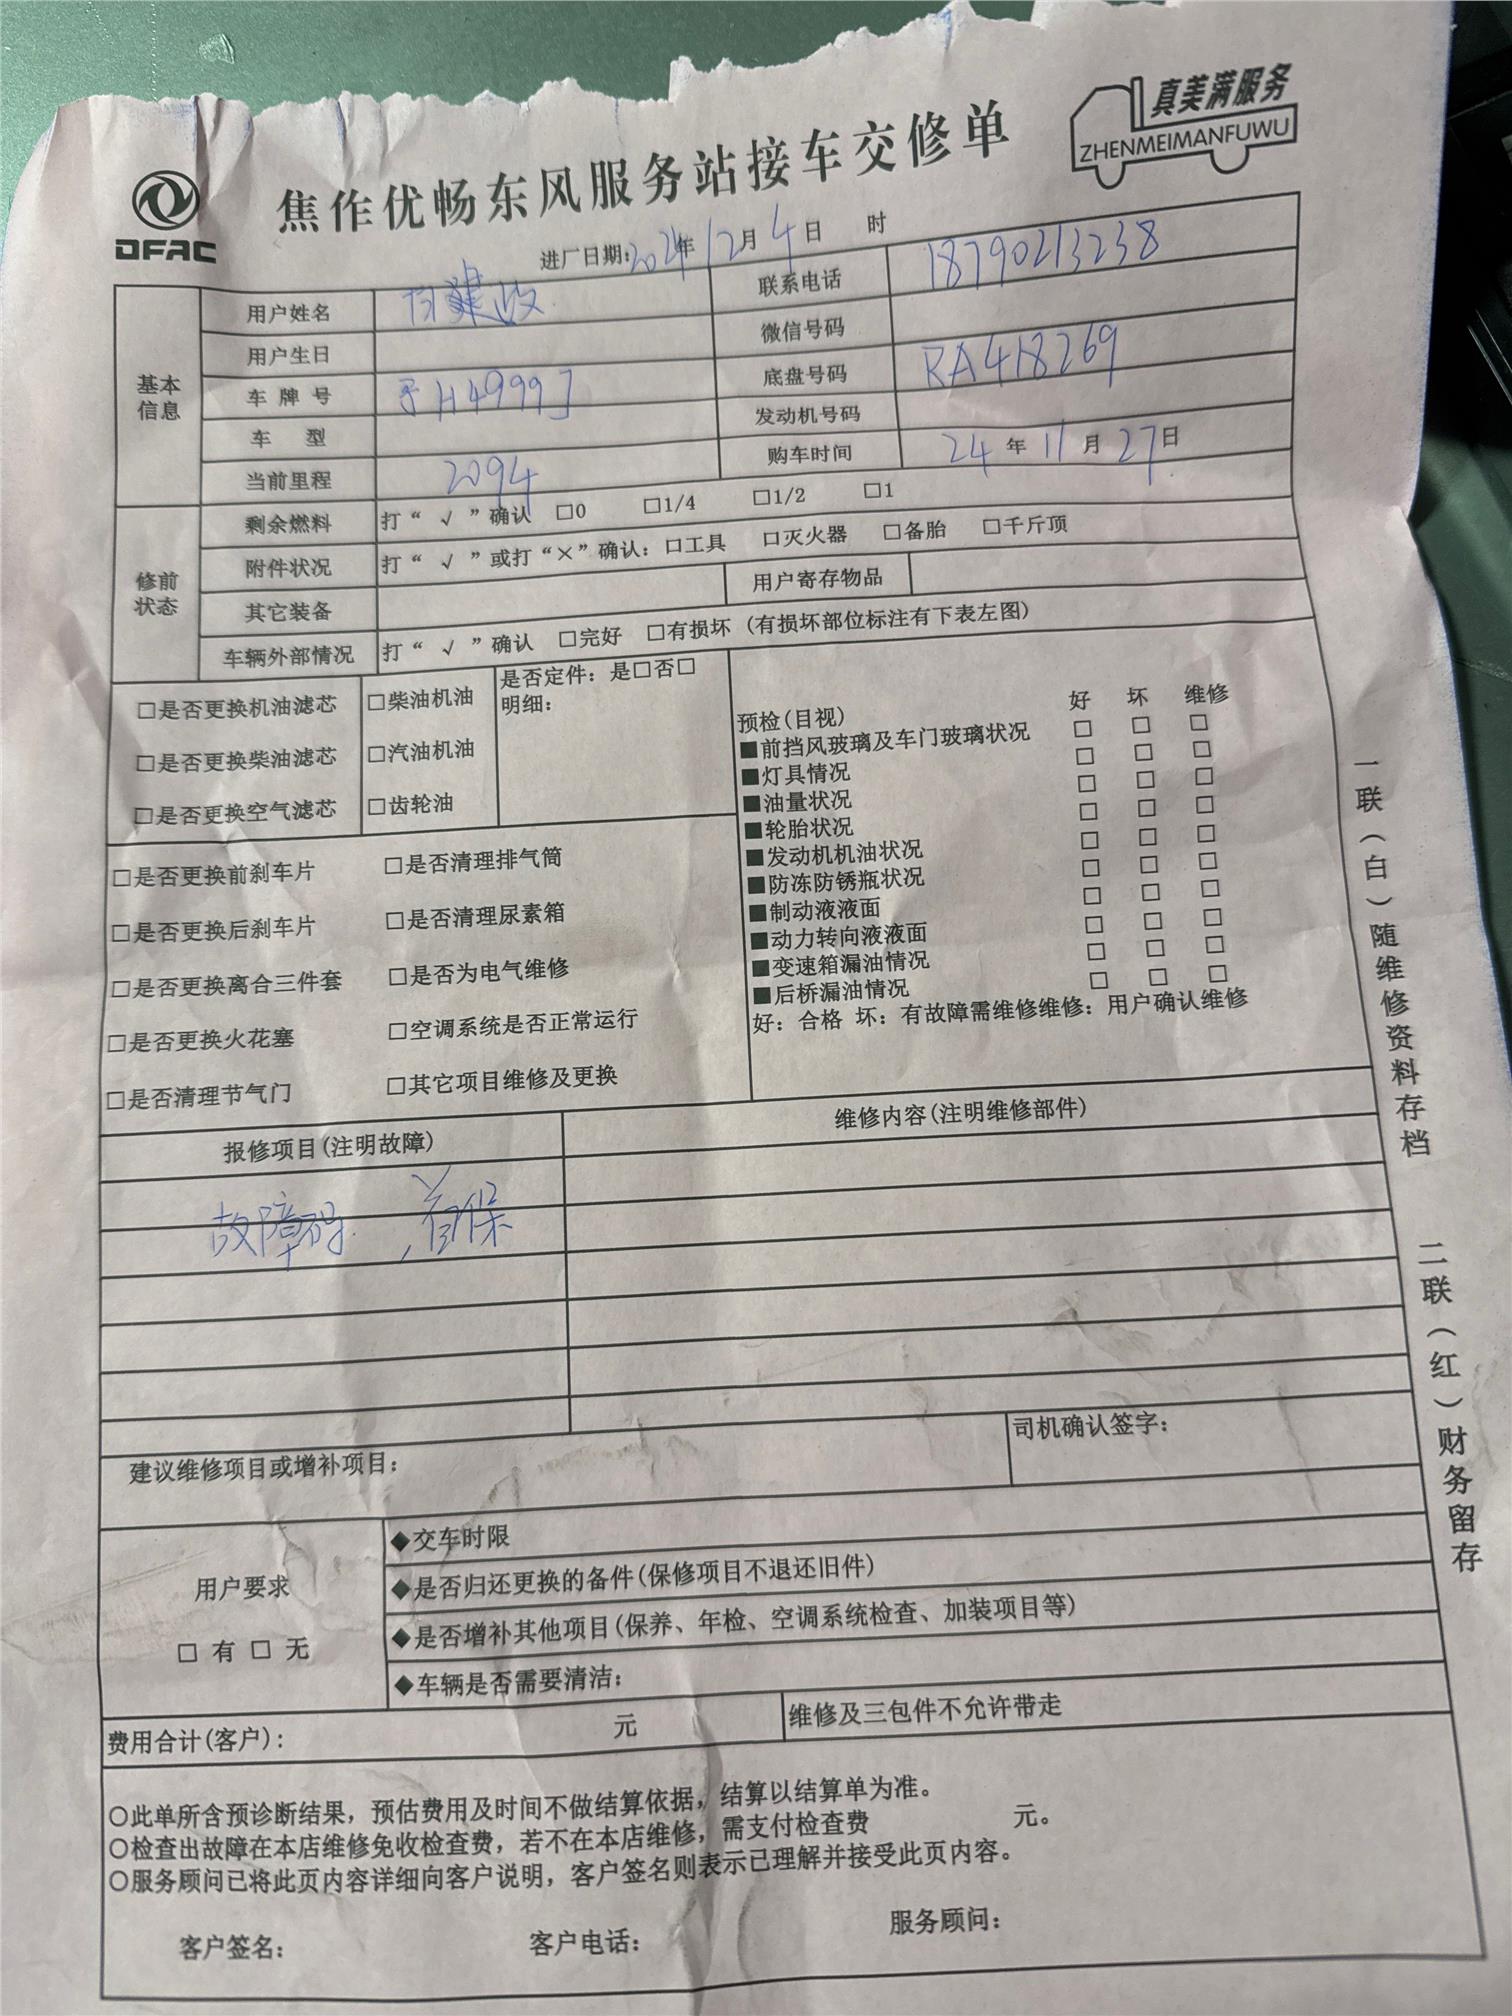 真美满服务
ZHENMEIMANFUWU
DFAC
焦作优畅东风服务站接车交修单
进厂日期: 2024年 12月 4日 时
基本信息
用户姓名 建政 联系电话 18790213238
用户生日 微信号码
车牌号 H4999 底盘号码 RA418269
车 型 发动机号码
当前里程 2094 购车时间 24年 11月 27日
修前状态
剩余燃料 打“ √ ”确认 □0 □1/4 □1/2 □1
附件状况 打“ √ ”或打“×”确认: □工具 □灭火器 □备胎 □千斤顶
其它装备 用户寄存物品
车辆外部情况 打“ √ ”确认 □完好 □有损坏 (有损坏部位标注有下表左图)
□是否更换机油滤芯 □柴油机油 是否定件: 是□否□
明细:
□是否更换柴油滤芯 □汽油机油
□是否更换空气滤芯 □齿轮油
□是否更换前刹车片 □是否清理排气筒
□是否更换后刹车片 □是否清理尿素箱
□是否更换离合三件套 □是否为电气维修
□是否更换火花塞 □空调系统是否正常运行
□是否清理节气门 □其它项目维修及更换
预检(目视) 好 坏 维修
■前挡风玻璃及车门玻璃状况 □ □ □
■灯具情况 □ □ □
■油量状况 □ □ □
■轮胎状况 □ □ □
■发动机机油状况 □ □ □
■防冻防锈瓶状况 □ □ □
■制动液液面 □ □ □
■动力转向液液面 □ □ □
■变速箱漏油情况 □ □ □
■后桥漏油情况 □ □ □
好: 合格 坏: 有故障需维修维修: 用户确认维修
报修项目(注明故障) 维修内容(注明维修部件)
故障码 首保
建议维修项目或增补项目: 司机确认签字:
用户要求
□ 有 □ 无
◆交车时限
◆是否归还更换的备件(保修项目不退还旧件)
◆是否增补其他项目(保养、年检、空调系统检查、加装项目等)
◆车辆是否需要清洁:
费用合计(客户): 元 维修及三包件不允许带走
○此单所含预诊断结果，预估费用及时间不做结算依据，结算以结算单为准。
○检查出故障在本店维修免收检查费，若不在本店维修，需支付检查费 元。
○服务顾问已将此页内容详细向客户说明，客户签名则表示已理解并接受此页内容。
客户签名: 客户电话: 服务顾问:
一联(白)随维修资料存档 二联(红)财务留存